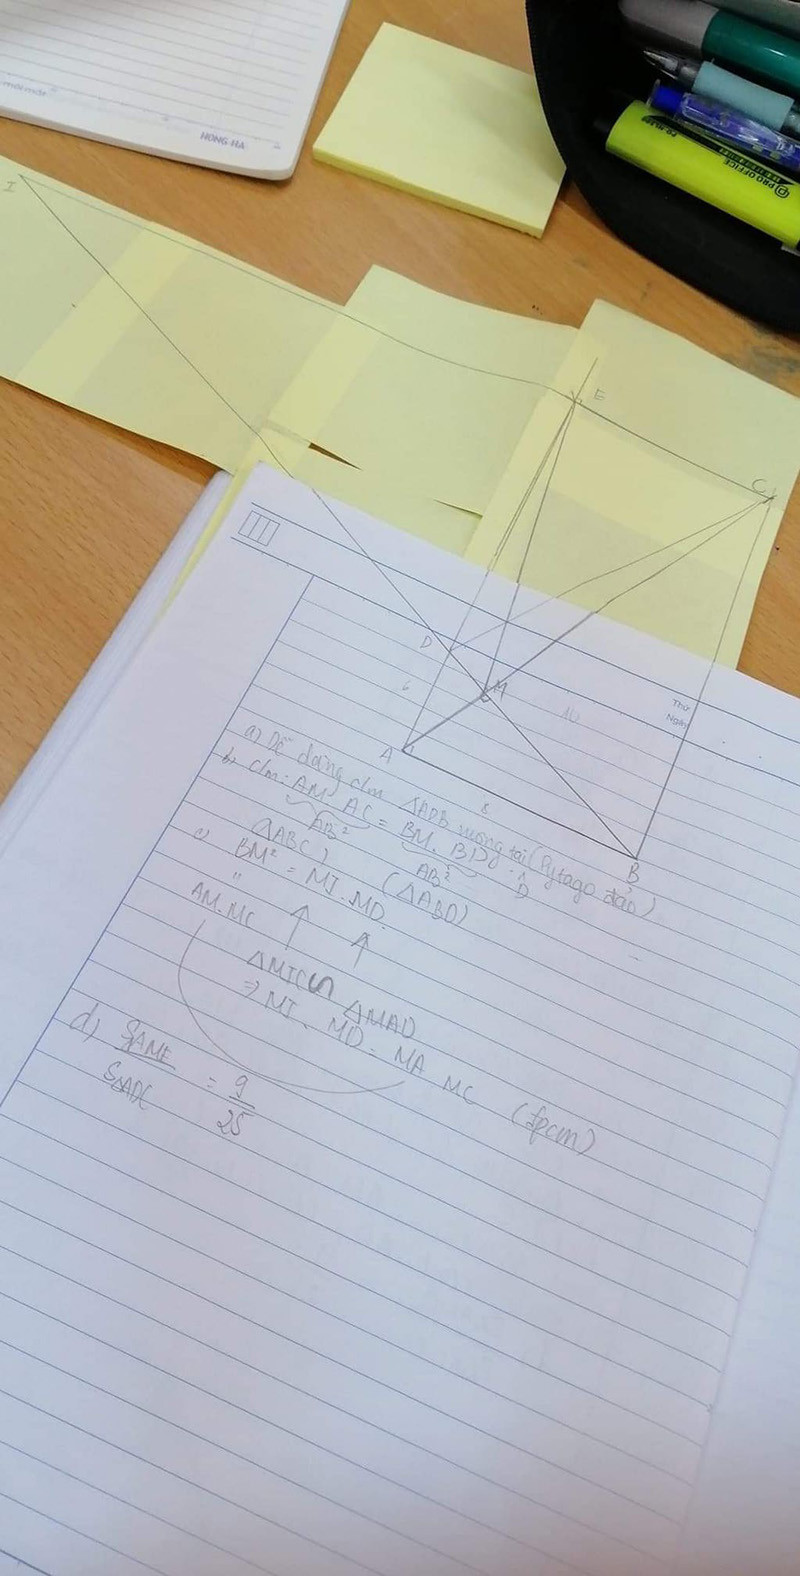 HONG HA
PRO OFFICE
I
E
C
D
M
6
10
Thứ
Ngày
A
8
B
a) Dễ dàng c/m △ADB vuông tại (Pytago đảo)
b) C/m: AM. AC = BM. BD
AB² AB²
(△ABC) (△ABD)
c) BM² = MI. MD
"
AM.MC
△MIC ∽ △MAD
⇒ MI. MD = MA MC (đpcm)
d) S△AME / S△ADC = 9/25